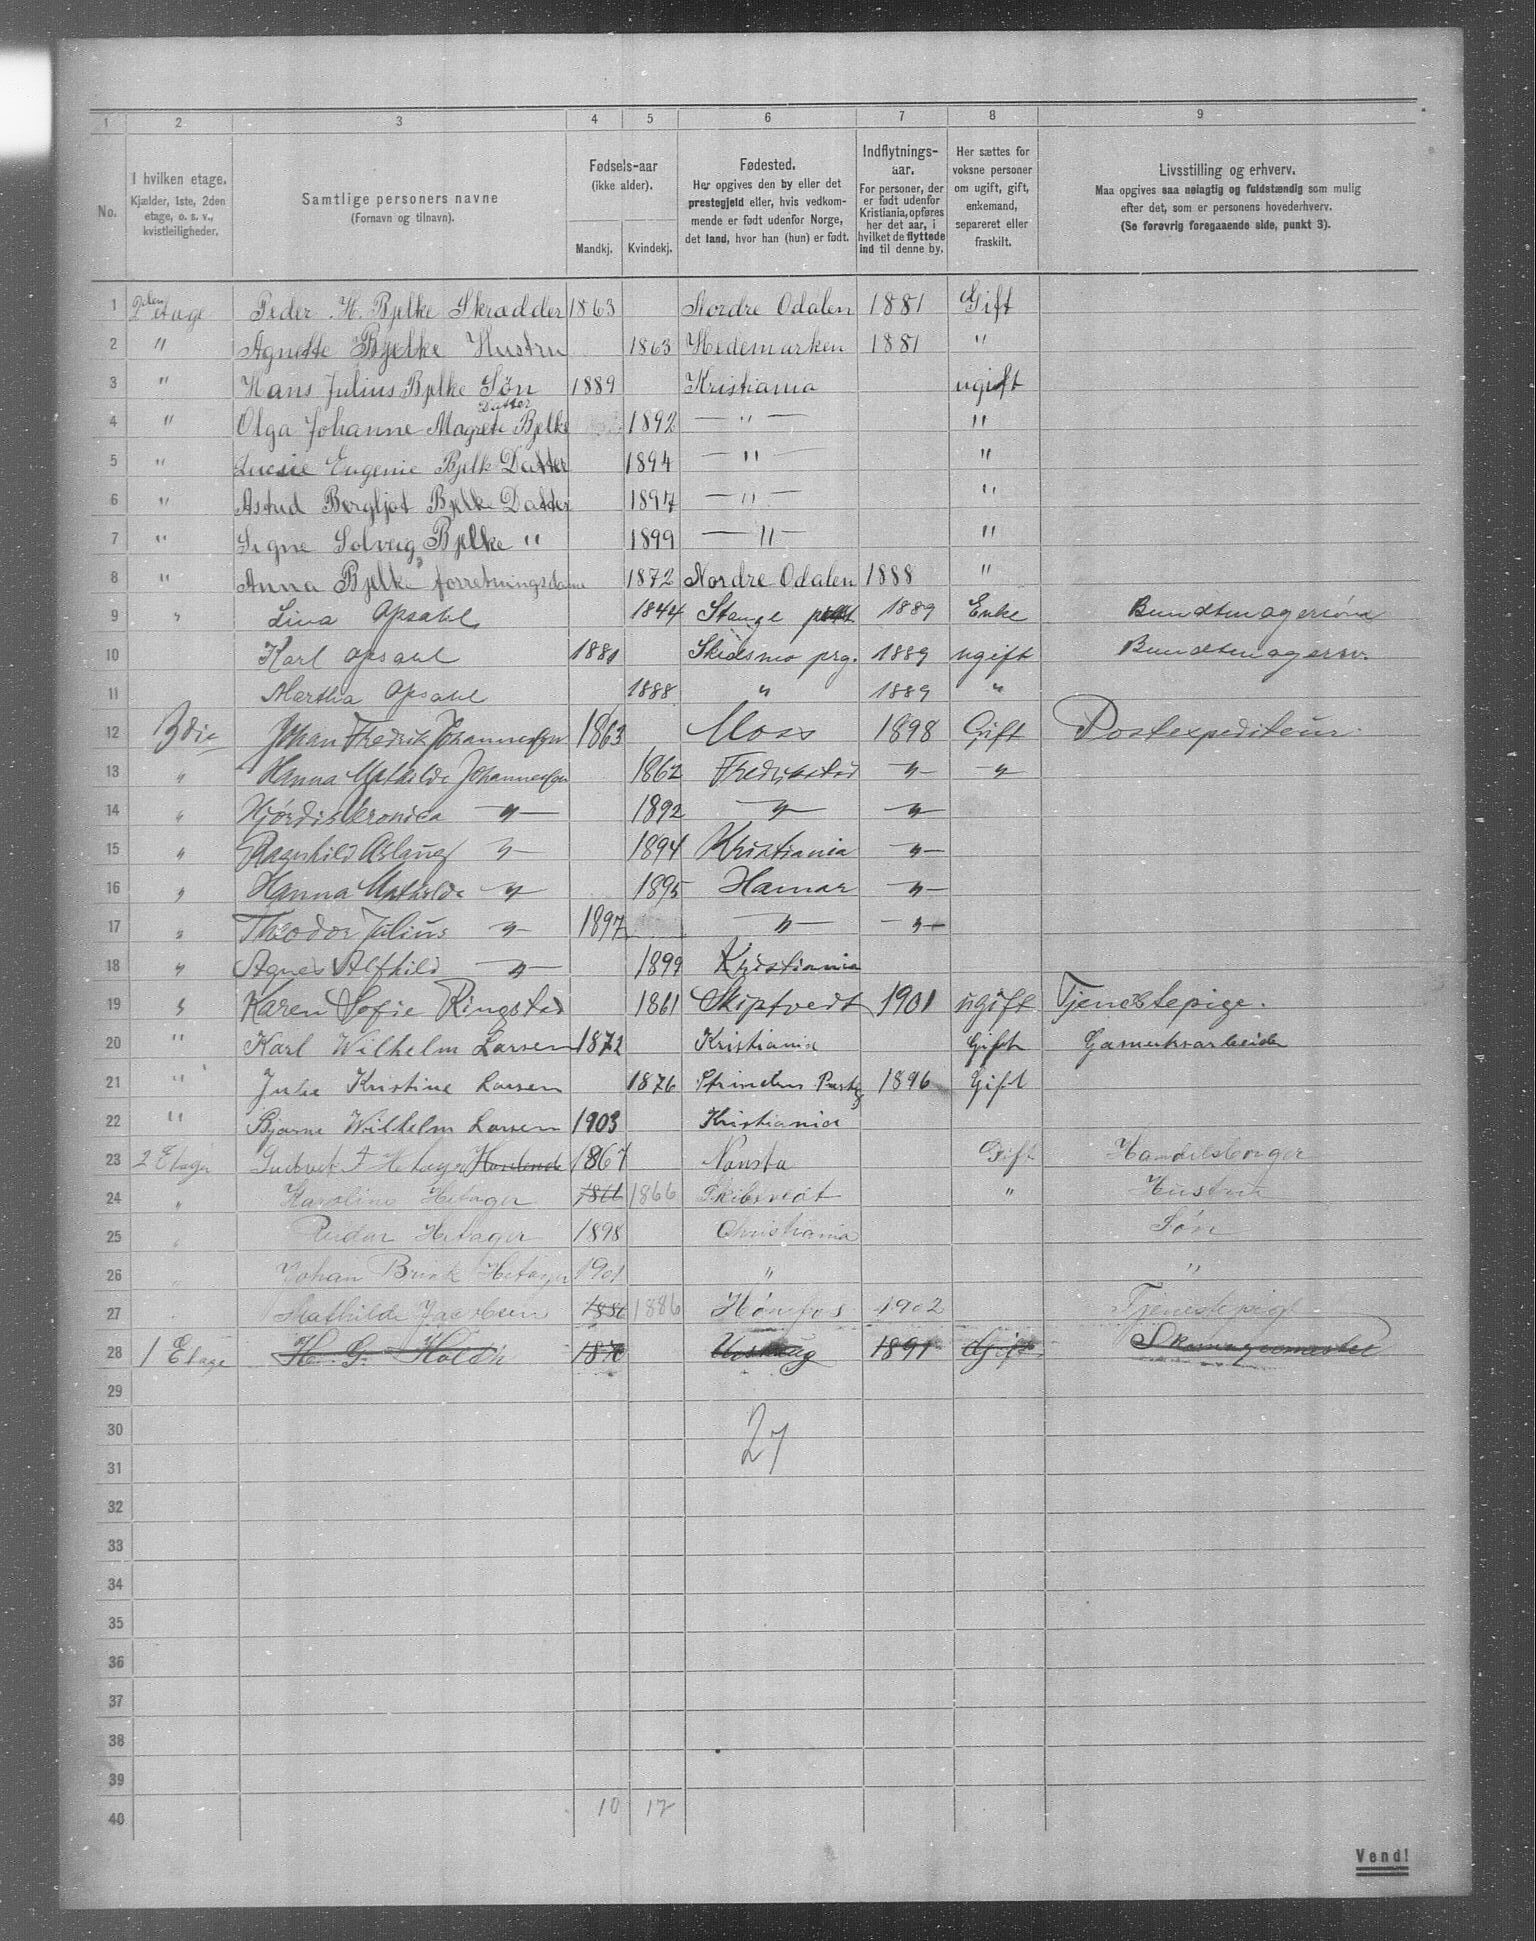 1 2 3 4 5 6 7 8 9
No.
I hvilken etage.
Kjælder, 1ste, 2den
etage, o. s. v.,
kvistleiligheder.
Samtlige personers navne
(Fornavn og tilnavn).
Fødsels-aar
(ikke alder).
Mandkj. Kvindekj.
Fødested.
Her opgives den by eller det
prestegjeld eller, hvis vedkom-
mende er født udenfor Norge,
det land, hvor han (hun) er født.
Indflytnings-
aar.
For personer, der
er født udenfor
Kristiania, opføres
her det aar, i
hvilket de flyttede
ind til denne by.
Her sættes for
voksne personer
om ugift, gift,
enkemand,
separeret eller
fraskilt.
Livsstilling og erhverv.
Maa opgives saa nøiagtig og fuldstændig som mulig
efter det, som er personens hovederhverv.
(Se forøvrig foregaaende side, punkt 3).
1 2den etage Peder H. Bjelke Skrædder 1863 Nordre Odalen 1881 Gift
2 " Agnette Bjelke Hustru 1863 Hedemarken 1881 "
3 " Hans Julius Bjelke Søn 1889 Kristiania ugift
Datter
4 " Olga Johanne Magrete Bjelke 1892 — " — "
5 " Lucie Eugenie Bjelk Datter 1894 — " — "
6 " Astrid Bergljot Bjelke Datter 1897 — " — "
7 " Signe Solveig Bjelke " 1899 — " — "
8 " Anna Bjelke forretningsdame 1872 Nordre Odalen 1888 "
9 " Lina Opsahl 1844 Stange 1889 Enke
10 Karl Opsahl 1881 Skidsmo prg. 1889 ugift
11 Martha Opsahl 1888 " 1889 "
12 3die Johan Fredrik Johannessen 1863 Moss 1898 Gift Postexpediteur.
13 " Hanna Mathilde Johannessen 1862 Fredrikstad " "
14 " Hjørdis Veronica — " — 1892 — " — — " —
15 " Ragnhild Aslaug " — 1894 Kristiania " —
16 " Hanna Mathilde — " — 1895 Hamar " —
17 " Theodor Julius — " — 1897 — " — — " —
18 " Agnes Alfhild — " — 1899 Kristiania
19 " Karen Sofie Ringstad 1861 Skiptvedt 1901 ugift Tjenestepige.
20 " Karl Wilhelm Larsen 1872 Kristiania Gift
21 " Julie Kristine Larsen 1876 Strindens 1896 Gift
22 " Bjarne Wilhelm Larsen 1903 Kristiania
23 2 Etage Hetager 1867 Gift Handelsborger
24 " Karoline Hetager 1866 1866 Skibtvedt " Hustru
25 " Reidar Hetager 1898 Christiania Søn
26 " Johan Brink Hetager 1901 " "
27 Mathilde Jacobsen 1886 1886 Hønefos 1902 Tjenestepige
28 1 Etage H. G. 1870 1891 Gift
29
30 27
31
32
33
34
35
36
37
38
39
40 10 17
Vend!